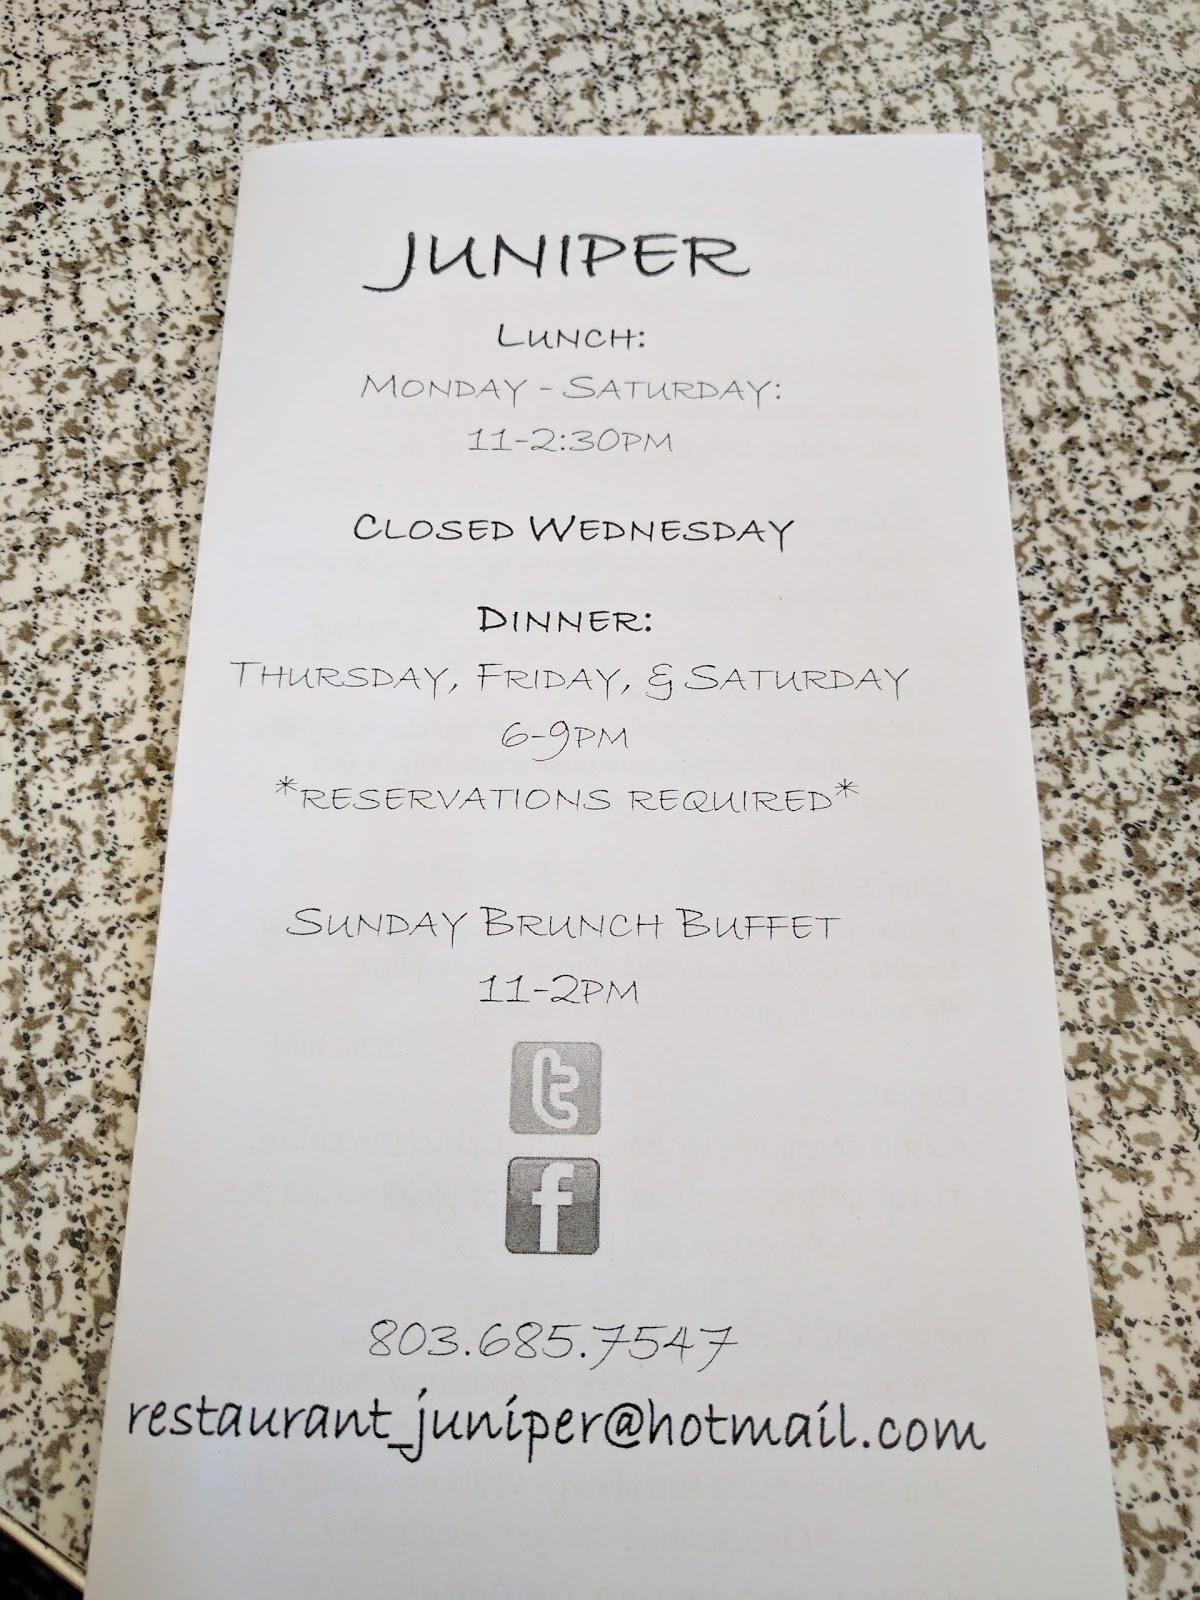 JUNIPER
LUNCH:
MONDAY - SATURDAY:
11-2:30PM
CLOSED WEDNESDAY
DINNER:
THURSDAY, FRIDAY, & SATURDAY
6-9PM
*RESERVATIONS REQUIRED*
SUNDAY BRUNCH BUFFET
11-2PM
t
f
803.685.7547
restaurant_juniper@hotmail.com